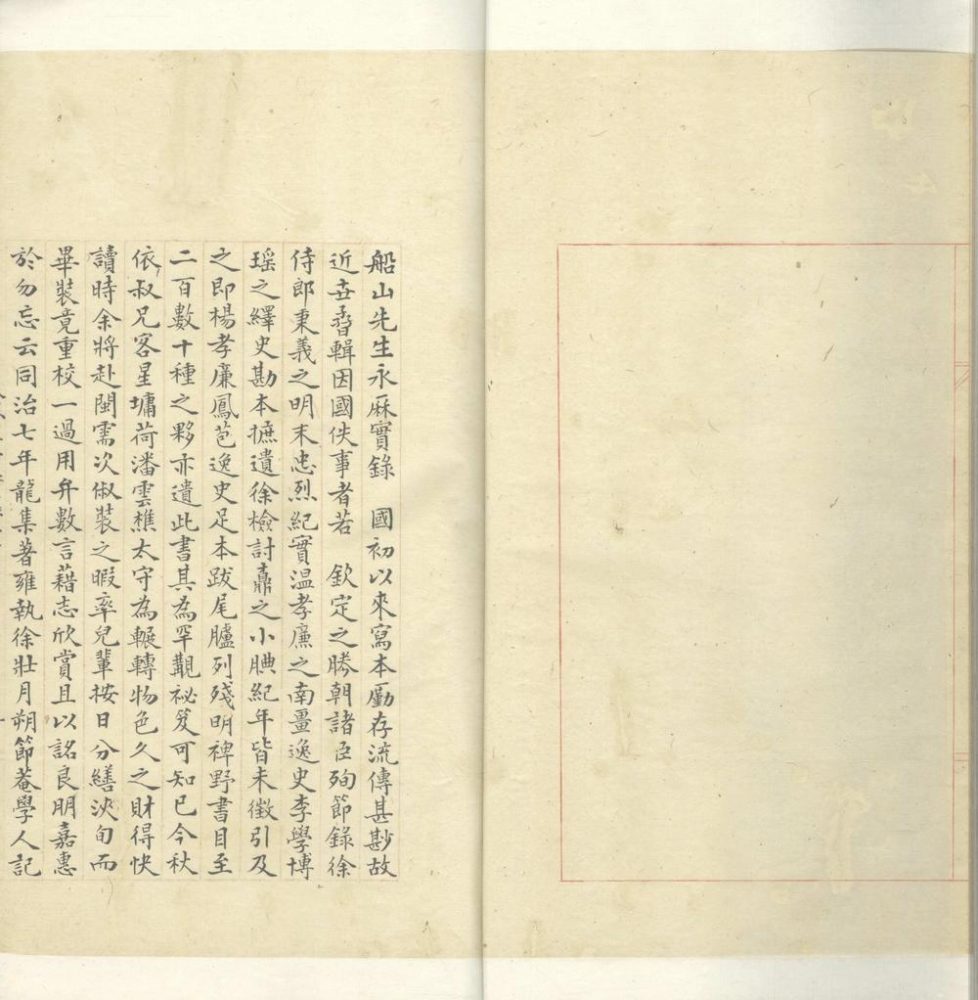 船山先生永厤實錄　國初以來寫本勵存流傳甚尠故
近世晉輯因國佚事者若　欽定之勝朝諸臣殉節錄徐
侍郎秉義之明末忠烈紀實温孝廉之南畺逸史李學博
瑶之繹史勘本摭遺徐檢討鼒之小腆紀年皆未徵引及
之即楊孝廉鳳苞逸史足本跋尾臚列殘明稗野書目至
二百數十種之夥亦遺此書其為罕覯祕笈可知已今秋
依叔兄客星墉荷潘雲樵太守為輾轉物色久之財得快
讀時余將赴閩需次俶裝之暇率兒輩按日分繕浹旬而
畢裝竟重校一過用弁數言藉志欣賞且以詺良朋嘉惠
於勿忘云同治七年龍集著雍執徐壯月朔節菴學人記